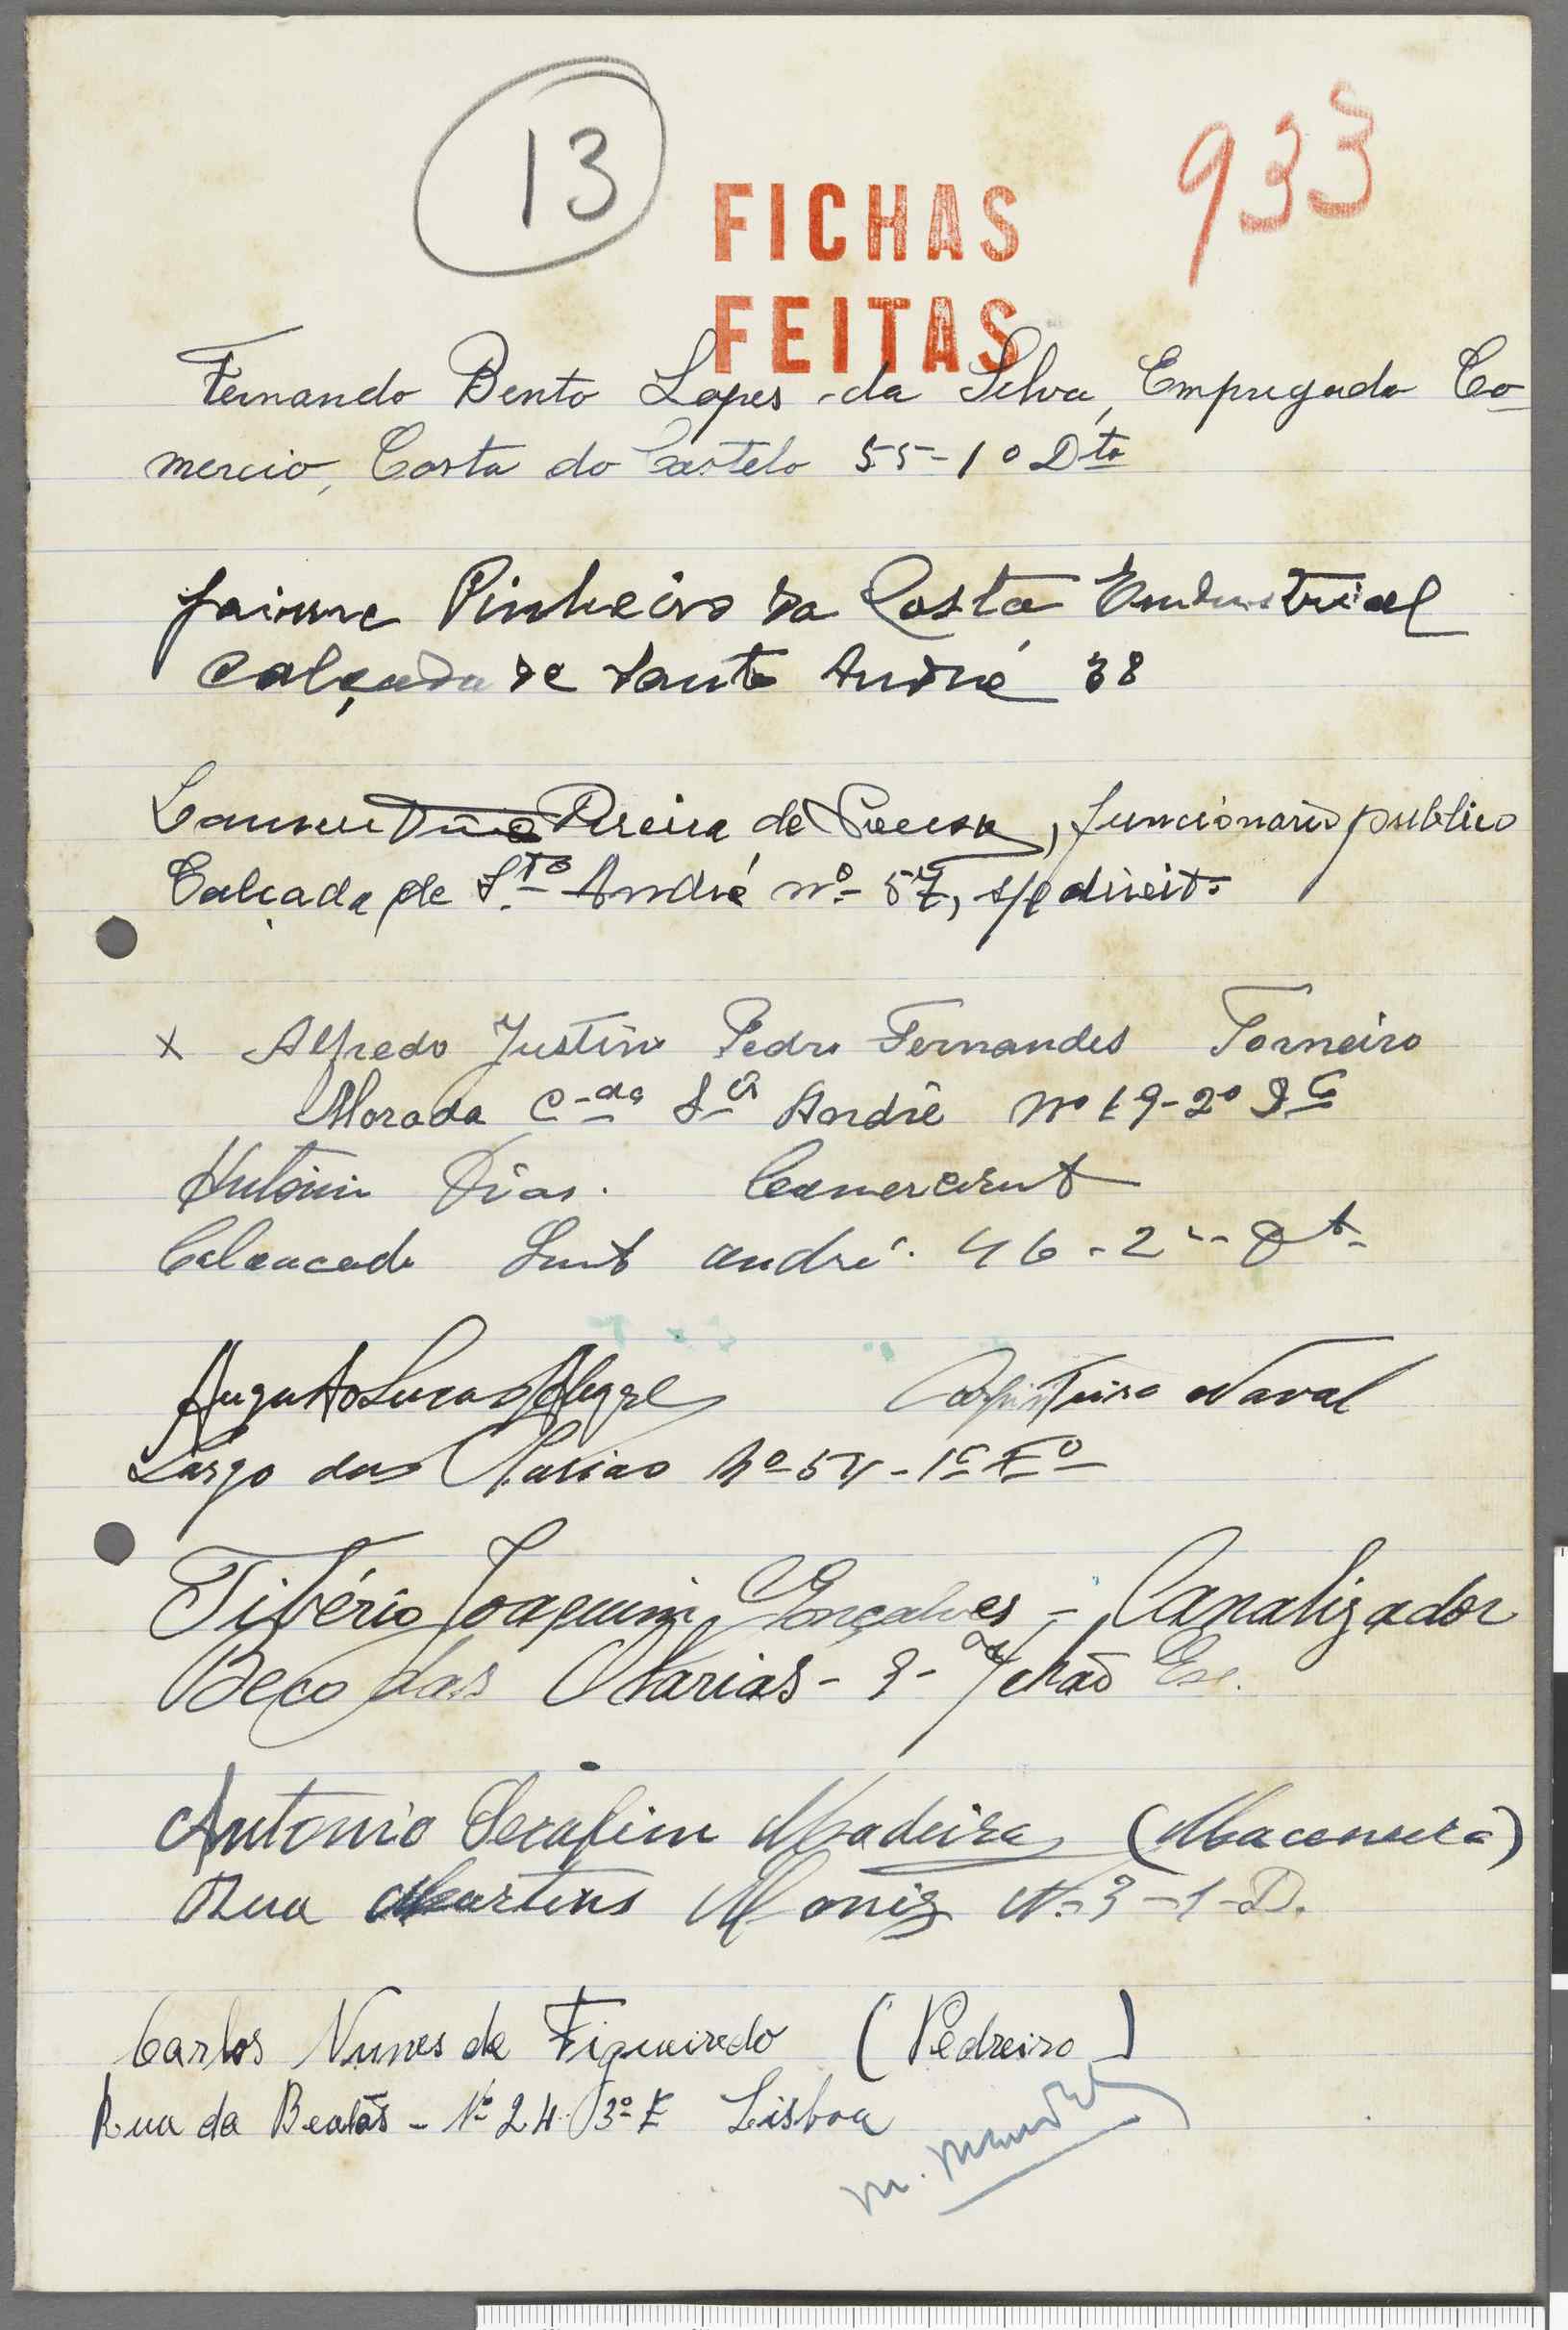 13
933
FICHAS
FEITAS
Fernando Bento Lopes da Silva, Empregado Co-
mercio, Costa do Castelo 55-1º Dto
Jaime Pinheiro da Costa Endustrial
Calçada de Santo André 38
Laurentino Pereira de Sousa, funcionario publico
Calçada de Sto André nº 57, s/l direito
x Alfredo Justino Pedro Fernandes Torneiro
Morada C-da Sto André nº 19-2º
Antonio Dias. Comerciant
Calcacada Sant André 46-2º-
Augusto Lucas Alegre Carpinteiro Naval
Largo das Olarias Nº 54-1º Eº
Tibério Joaquim Gonçalves - Canalizador
Beco das Olarias - 3- Esc.
Antonio Serafim Madeira
Rua Martins Moniz N. 3-1-D.
Carlos Nunes de Figueiredo (Pedreiro)
Rua da Beatas - Nº 24 3º E Lisboa
M.